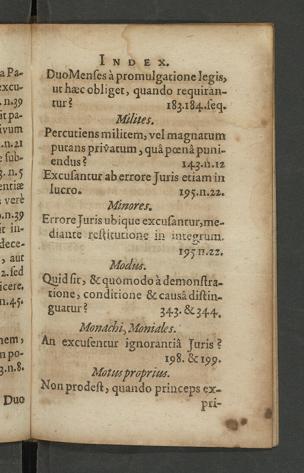 a Pa-
excu-
.n.39
it pa-
ivum
.n.21
e sub-
3. n. 5
entiæ
verè
o.n.39
it in-
dece-
, aut
2.sed
icere.
n.45.
nem,
n po-
3.n.8.
Duo
INDEX.
Duo Menses à promulgatione legis,
ut hæc obliget, quando requiran-
tur? 183.184.seq.
Milites.
Percutiens militem, vel magnatum
putans privatum, quâ pœnâ puni-
endus? 143.n.12
Excusantur ab errore Juris etiam in
lucro. 195.n.22.
Minores.
Errore Juris ubique excusantur, me-
diante restitutione in integrum.
195 n.22.
Modus.
Quid sit, & quomodo à demonstra-
tione, conditione & causâ distin-
guatur? 343. & 344.
Monachi, Moniales.
An excusentur ignorantiâ Juris?
198. & 199.
Motus proprius.
Non prodest, quando princeps ex-
pri-